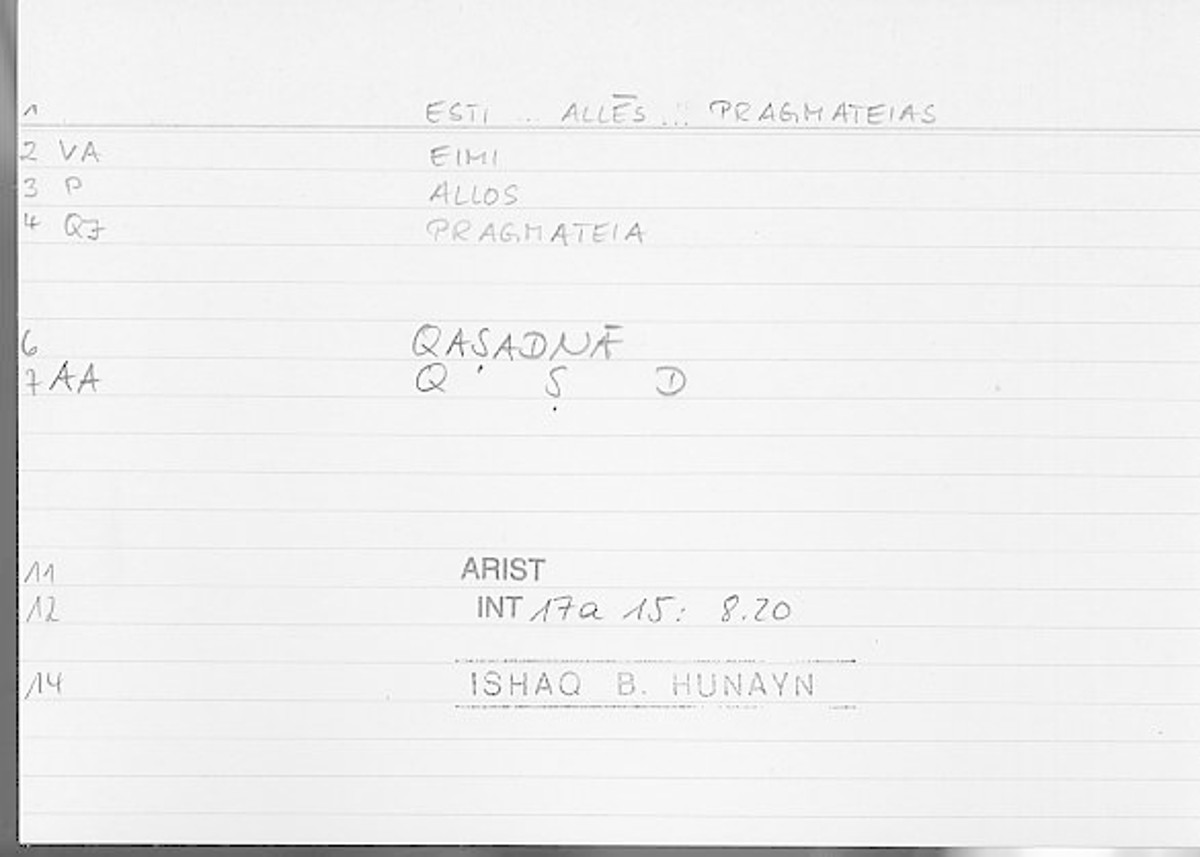 1 ESTI .. ALLĒS ... PRAGMATEIAS
2 VA EIMI
3 P ALLOS
4 Q7 PRAGMATEIA
6 QAṢADNĀ
7 AA Q Ṣ D
11 ARIST
12 INT 17a 15: 8.20
14 ISHAQ B. HUNAYN